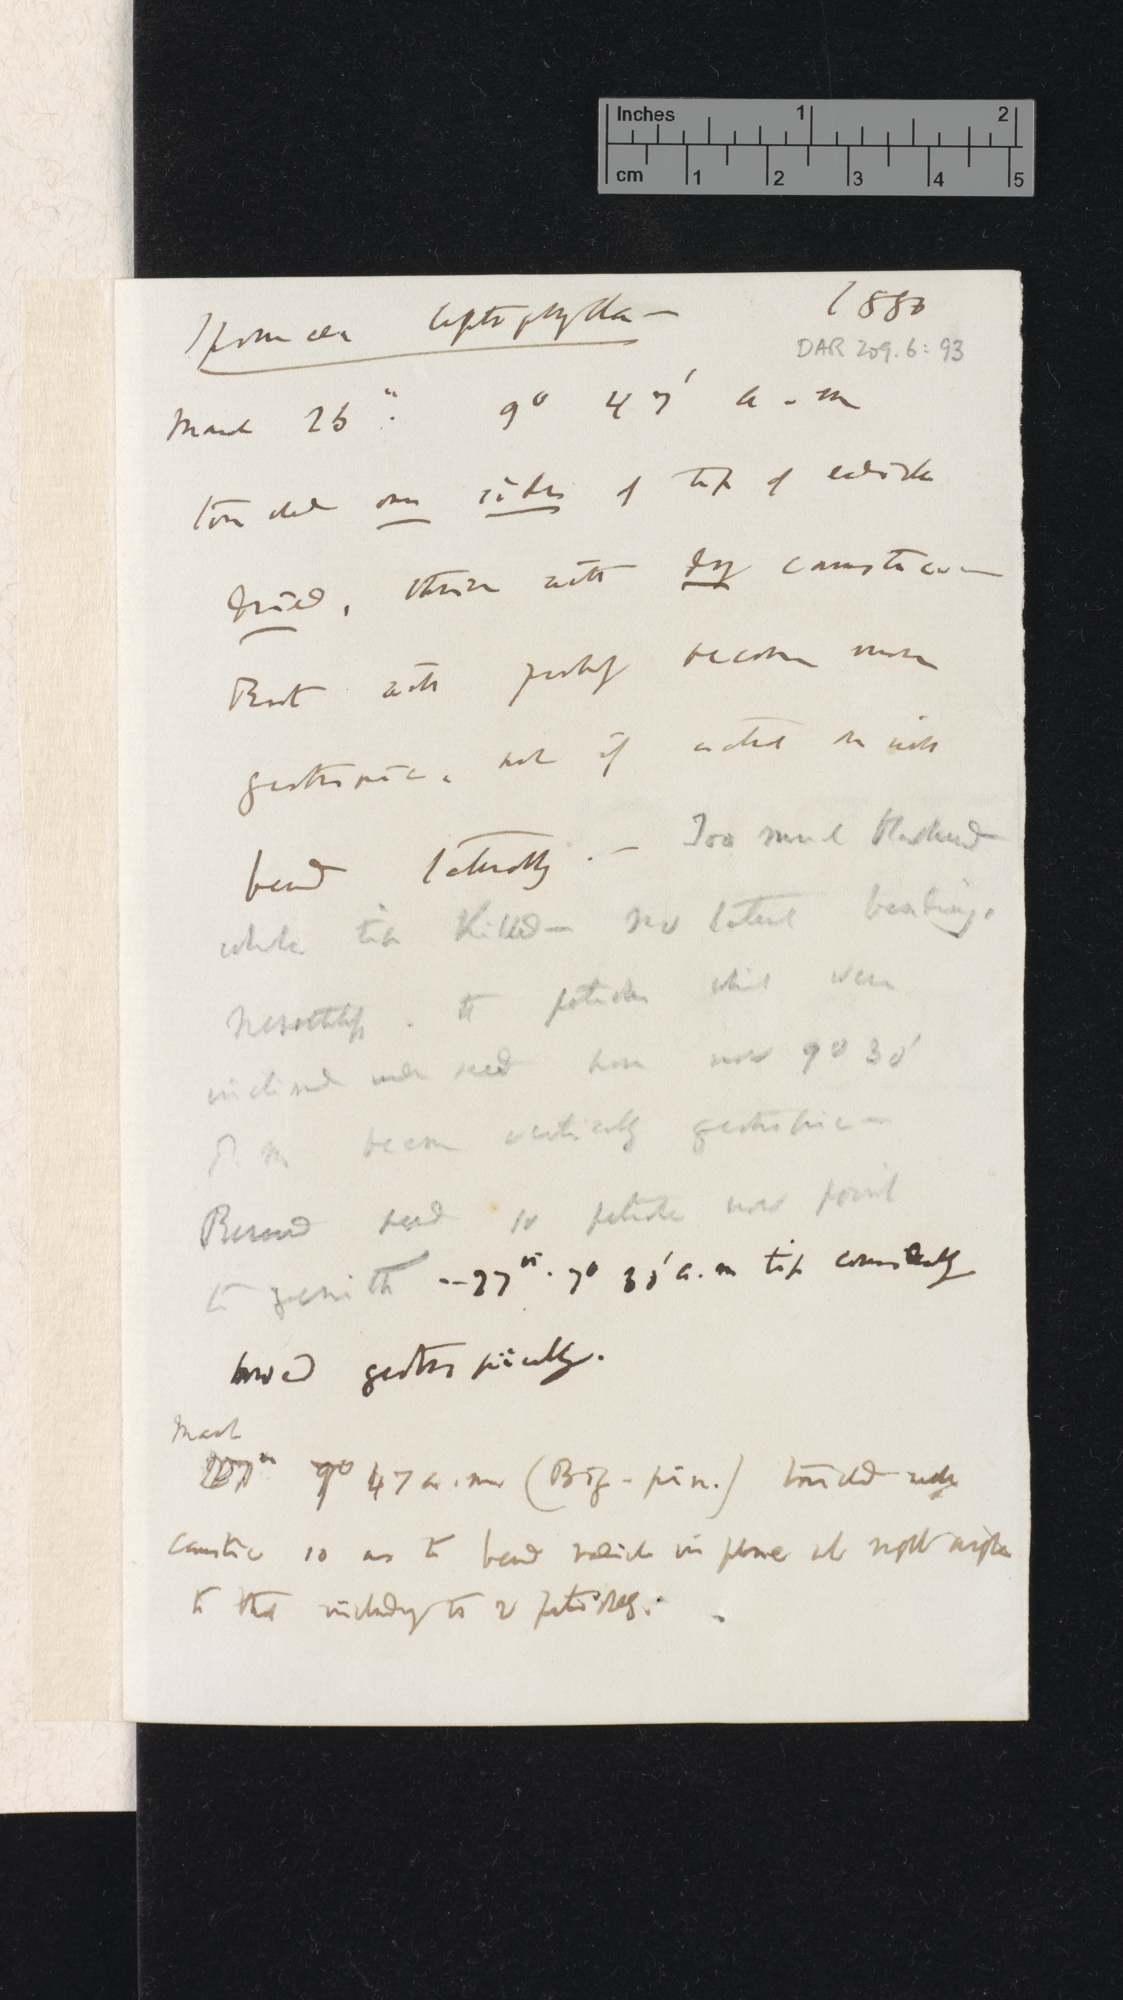 Inches 1 2
cm 1 2 3 4 5
Ipomœa leptophylla — 1880
DAR 209.6: 93
March 25th. 9° 47' a.m
touched one side of tip of radicle
dried, then with dry caustic —
But will probably become more
geotropic, not if acted on will
bend laterally. — Too much blackened
whole tip killed — no lateral bending.
Nevertheless. the petioles which were
inclined under seed have now 9° 30'
P.m become vertically geotropic —
Removed seed so petioles now point
to zenith — 27th. 7° 30' a.m tip completely
bowed geotropically.
March
9° 47 a.m (Big-pin.) touched with
caustic so as to bend radicle in plane at right angles
to that including the 2 petioles.